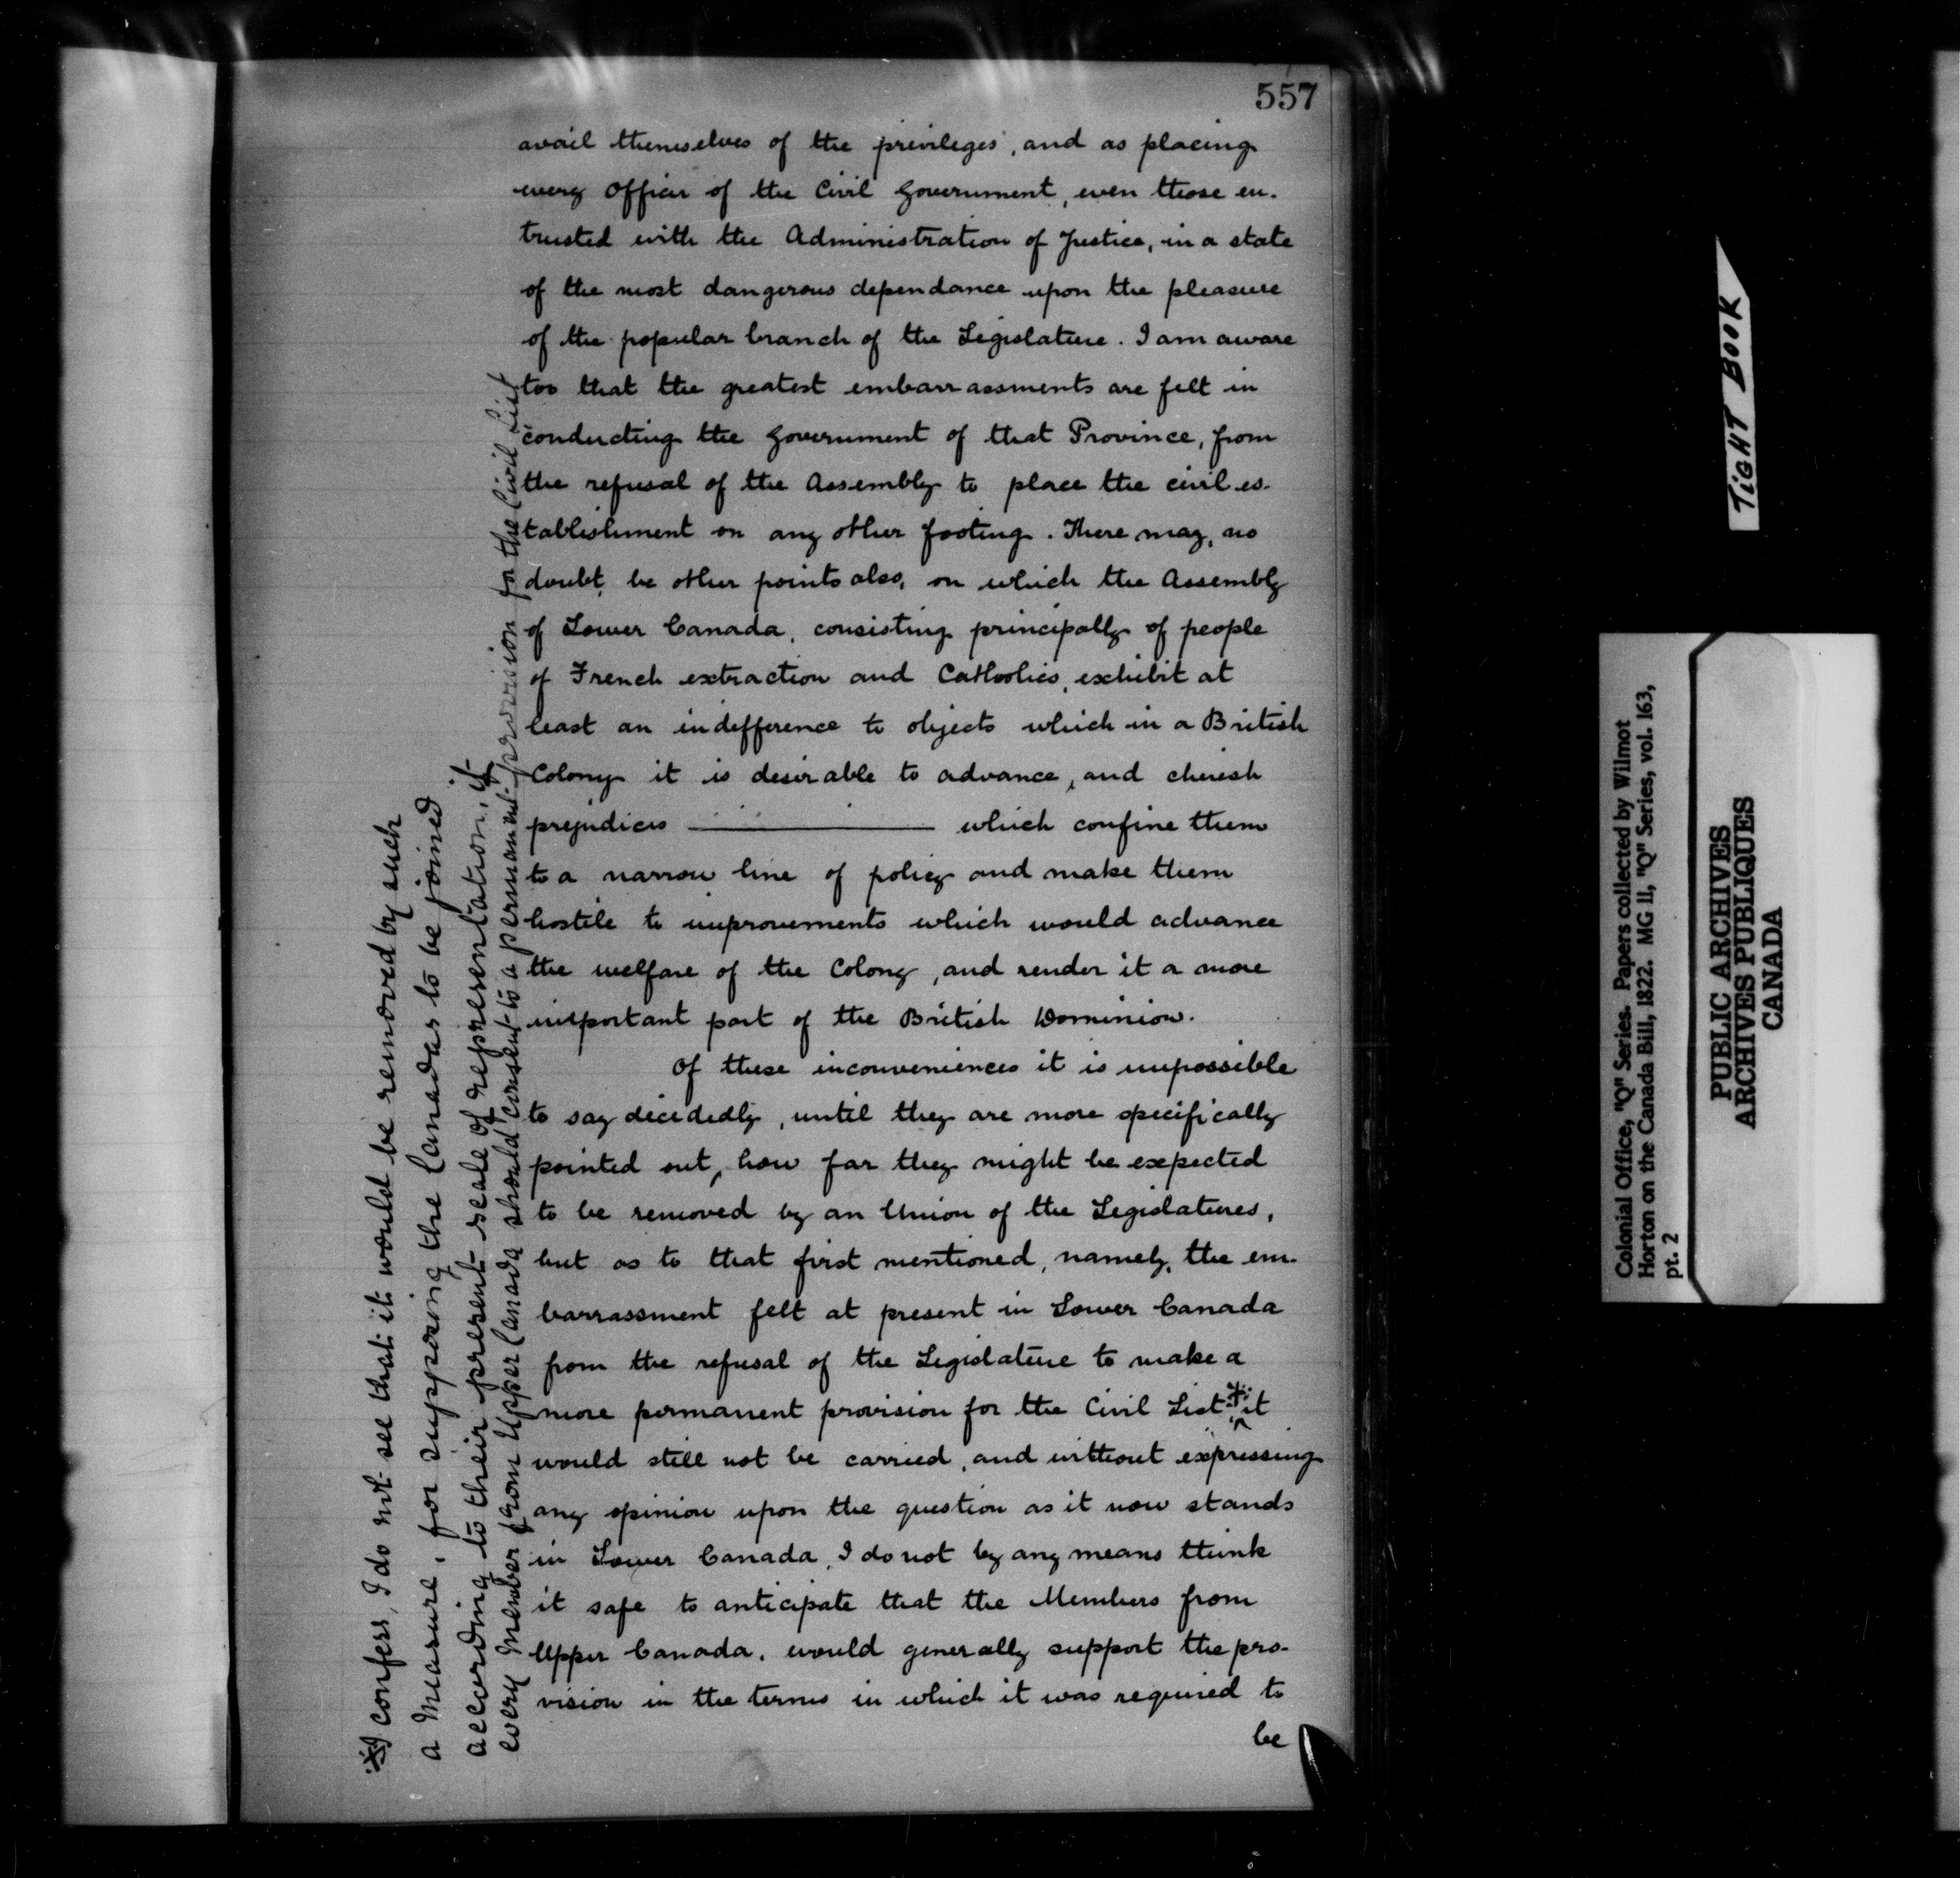 557
avail themselves of the privileges, and as placing
every Officer of the Civil Government, even those en-
trusted with the Administration of Justice, in a state
of the most dangerous dependance upon the pleasure
of the popular branch of the Legislature. I am aware
too that the greatest embarrassments are felt in
conducting the Government of that Province, from
the refusal of the Assembly to place the civil es-
tablishment on any other footing. There may, no
doubt, be other points also, on which the Assembly
of Lower Canada, consisting principally of people
of French extraction and Catholics, exhibit at
least an indefference to objects which in a British
Colony it is desirable to advance, and cherish
prejudices ———— which confine them
to a narrow line of policy and make them
hostile to improvements which would advance
the welfare of the Colony, and render it a more
important part of the British Dominion.
Of these inconveniences it is impossible
to say decidedly, until they are more specifically
pointed out, how far they might be expected
to be removed by an Union of the Legislatures,
but as to that first mentioned, namely, the em-
barrassment felt at present in Lower Canada
from the refusal of the Legislature to make a
more permanent provision for the Civil List ※ it
would still not be carried, and without expressing
any opinion upon the question as it now stands
in Lower Canada, I do not by any means think
it safe to anticipate that the Members from
Upper Canada, would generally support the pro-
vision in the terms in which it was required to
be
※ I confess, I do not see that it would be removed by such
a measure, for supposing the Canadas to be joined
according to their present scale of representation, if
every Member from Upper Canada should consent to a permanent provision for the Civil List
TIGHT BOOK
Colonial Office, "Q" Series. Papers collected by Wilmot
Horton on the Canada Bill, 1822. MG 11, "Q" Series, vol. 163,
pt. 2
PUBLIC ARCHIVES
ARCHIVES PUBLIQUES
CANADA